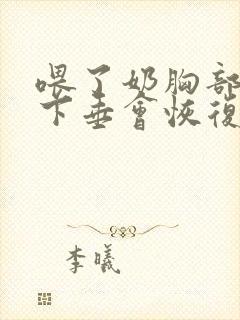 喂了奶胸部
下垂會恢復
李曦